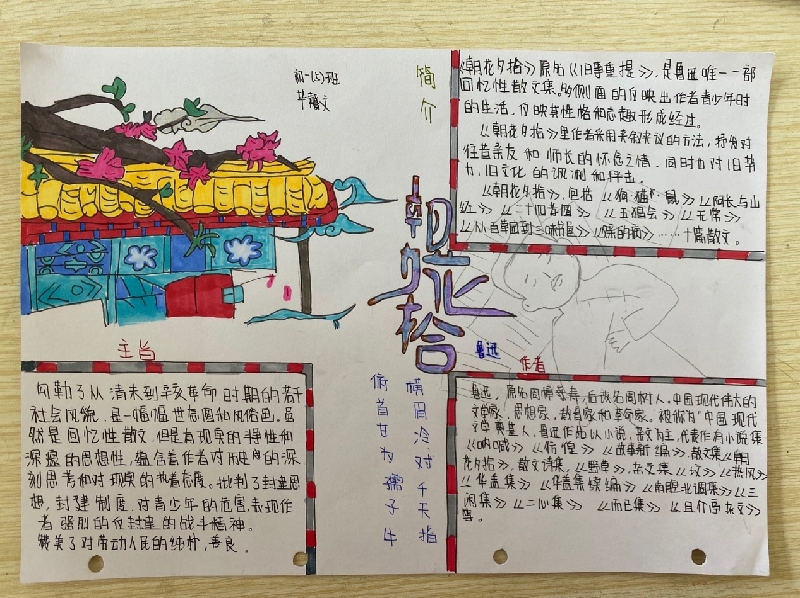 初一(5)班
简介
《朝花夕拾》原名《旧事重提》,是鲁迅唯一一部
回忆性散文集。侧面的反映出作者青少年时
的生活,反映其性格和志趣形成经过。
《朝花夕拾》里作者采用夹叙夹议的方法,抒发对
往昔亲友和师长的怀念之情,同时也对旧势
力,旧文化的讽刺和抨击。
《朝花夕拾》,包括《狗·猫·鼠》《阿长与山
》《二十四孝图》《五猖会》《无常》
《从百草园到三味书屋》《父亲的病》……十篇散文。
朝花夕拾
主旨
勾勒了从清末到辛亥革命时期的若干
社会风貌,是一幅幅世态图和风俗画。虽
然是回忆性散文,但是有现实的特性和
深邃的思想性,蕴含着作者对历史的深
刻思考和对现实的执着态度。批判了封建思
想,封建制度,对青少年的危害,表现作
者强烈的反封建的战斗精神。
赞美了对劳动人民的纯朴,善良。
横眉冷对千夫指
俯首甘为孺子牛
鲁迅
作者
鲁迅,原名周樟寿,后改名周树人。中国现代伟大的
文学家,思想家,革命家。被称为"中国现代
文学奠基人,鲁迅作品以小说,杂文为主,代表作有小说集
《呐喊》《彷徨》《故事新编》,散文集《朝
花夕拾》,散文诗集,《野草》,杂文集《坟》《热风》
《华盖集》《华盖集续编》《南腔北调集》《三
闲集》《二心集》《而已集》《且介亭杂文》
等。